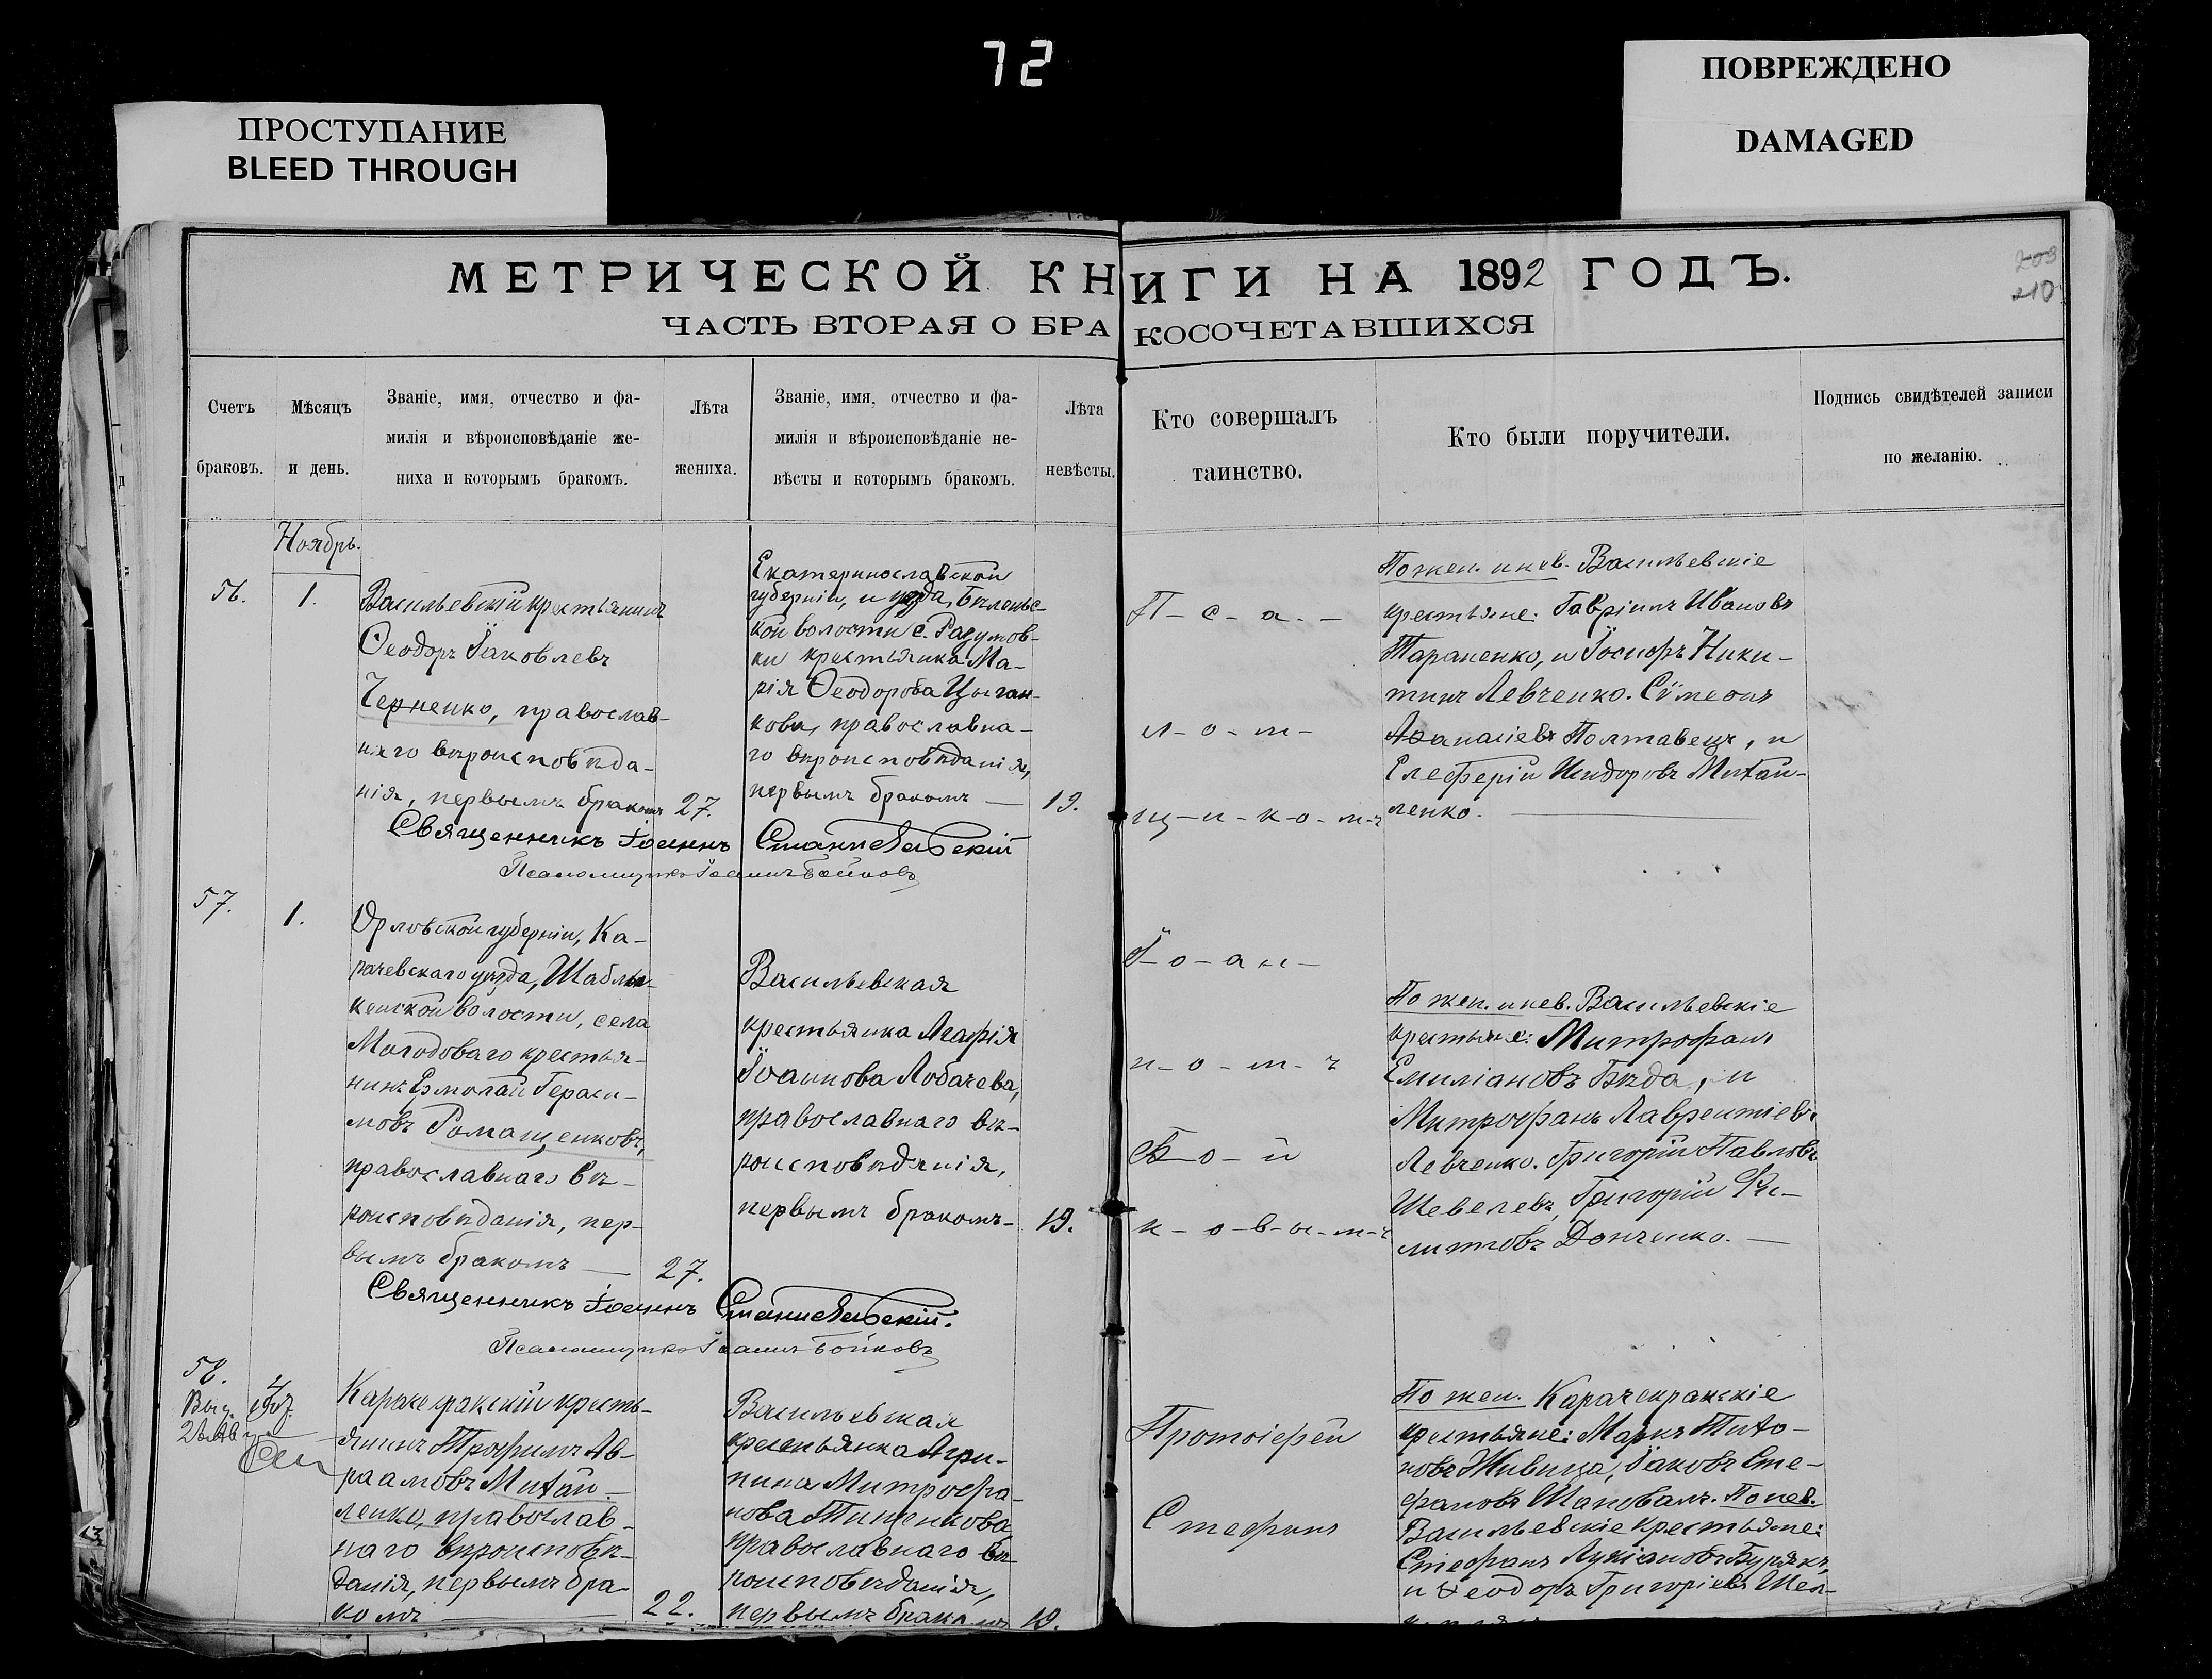 72
ПОВРЕЖДЕНО
DAMAGED
ПРОСТУПАНИЕ
BLEED THROUGH
МЕТРИЧЕСКОЙ КНИГИ НА 1892 ГОДЪ.
209
210
ЧАСТЬ ВТОРАЯ О БРАКОСОЧЕТАВШИХСЯ
Счетъ
браковъ.
Мѣсяцъ
и день.
Званіе, имя, отчество и фа-
милія и вѣроисповѣданіе же-
ниха и которымъ бракомъ.
Лѣта
жениха.
Званіе, имя, отчество и фа-
милія и вѣроисповѣданіе не-
вѣсты и которымъ бракомъ.
Лѣта
невѣсты.
Кто совершалъ
таинство.
Кто были поручители.
Подпись свидѣтелей записи
по желанію.
Ноябрь.
56.
1.
Васильевскій крестьянинъ
Ѳеодоръ Іаковлевъ
Черненко, православ-
наго вѣроисповѣда-
нія, первымъ бракомъ
27.
Екатеринославской
губерніи, и уѣзда, Бѣленьс-
кой волости с. Разумов-
ки крестьянка Ма-
рія Ѳеодорова Цыган-
кова, православна-
го вѣроисповѣданія,
первымъ бракомъ —
19.
П-с-а.-
л-о-м-
щ-и-к-о-м-ъ
По жен. и нев. Васильевскіе
крестьяне: Гавріилъ Ивановъ
Тараненко, и Іосифъ Ники-
тинъ Левченко. Сѵмеонъ
Аѳанасіевъ Полтавецъ, и
Елеѳерій Исидоровъ Михай-
ленко.
Священникъ Іоаннъ Станиславскій
Псаломщикъ Іоаннъ Бойковъ
57.
1.
Орловской губерніи, Ка-
рачевскаго уѣзда, Шаблы-
кинской волости, села
Молодоваго крестья-
нинъ Ермолай Гераси-
мовъ Ромащенковъ,
православнаго вѣ-
роисповѣданія, пер-
вымъ бракомъ —
27.
Васильевская
крестьянка Агафія
Іоаннова Лобачева,
православнаго вѣ-
роисповѣданія,
первымъ бракомъ-
19.
І-о-ан-
н-о-м-ъ
Б-о-й
к-о-в-ы-м-ъ
По жен. и нев. Васильевскіе
крестьяне: Митрофанъ
Емиліановъ Бѣда, и
Митрофанъ Лаврентіевъ
Левченко. Григорій Павловъ
Шевелевъ, Григорій Фи-
липповъ Донченко. —
Священникъ Іоаннъ Станиславскій.
Псаломщикъ Іоаннъ Бойковъ
58.
4
Карачекракскій кресть-
янинъ Трофимъ Ав-
раамовъ Михай-
ленко, православ-
наго вѣроисповѣ-
данія, первымъ бра-
комъ
22.
Васильевская
крестьянка Агри-
пина Митрофа-
нова Тищенкова
православнаго вѣ-
роисповѣданія,
первымъ бракомъ
19.
Протоіерей
Стефанъ
По жен. Карачекракскіе
крестьяне: Маркъ Тито-
новъ Живица, Іаковъ Сте-
фановъ Шаповалъ. По нев.
Васильевскіе крестьяне:
Стефанъ Лукіановъ Бурякъ,
и Ѳеодоръ Григоріевъ Шел-